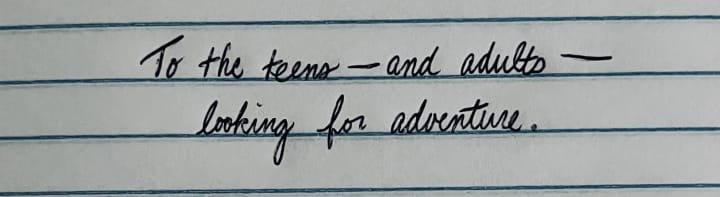 To the teens — and adults —
looking for adventure.